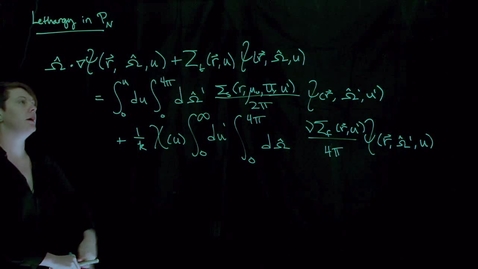 Lethargy in P_N
Ω̂·∇ψ(r⃗, Ω̂, u) + Σ_t(r⃗, u) ψ(r⃗, Ω̂, u)
= ∫_0^u du ∫_0^{4π} dΩ̂' Σ_s(r, μ_0, U, u')/2π ψ(r⃗, Ω̂', u')
+ 1/k χ(u) ∫_0^∞ du' ∫_0^{4π} dΩ̂ νΣ_f(r⃗, u')/4π ψ(r⃗, Ω̂', u)